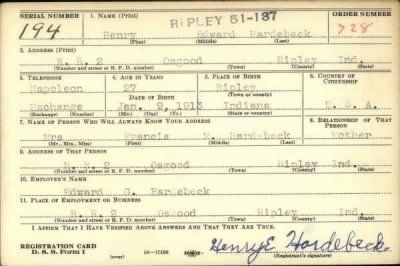 SERIAL NUMBER 1. NAME (Print) RIPLEY 51-137 ORDER NUMBER
194 Henry Edward Hardebeck 728
(First) (Middle) (Last)
2. ADDRESS (Print)
R. R. 2 Osgood Ripley Ind.
(Number and street or R. F. D. number) (Town) (County) (State)
3. TELEPHONE 4. AGE IN YEARS 5. PLACE OF BIRTH 6. COUNTRY OF CITIZENSHIP
Napoleon 27 Ripley
DATE OF BIRTH (Town or county)
Exchange Jan. 9, 1913 Indiana U. S. A.
(Exchange) (Number) (Mo.) (Day) (Yr.) (State or country)
7. NAME OF PERSON WHO WILL ALWAYS KNOW YOUR ADDRESS 8. RELATIONSHIP OF THAT PERSON
Mrs Francis M. Hardebeck Mother
(Mr., Mrs., Miss) (First) (Middle) (Last)
9. ADDRESS OF THAT PERSON
R. R. 2 Osgood Ripley Ind.
(Number and street or R. F. D. number) (Town) (County) (State)
10. EMPLOYER'S NAME
Edward G. Hardebeck
11. PLACE OF EMPLOYMENT OR BUSINESS
R. R. 2 Osgood Ripley Ind.
(Number and street or R. F. D. number) (Town) (County) (State)
I AFFIRM THAT I HAVE VERIFIED ABOVE ANSWERS AND THAT THEY ARE TRUE.
REGISTRATION CARD
D. S. S. Form 1 (over) Henry E Hardebeck
(Registrant's signature)